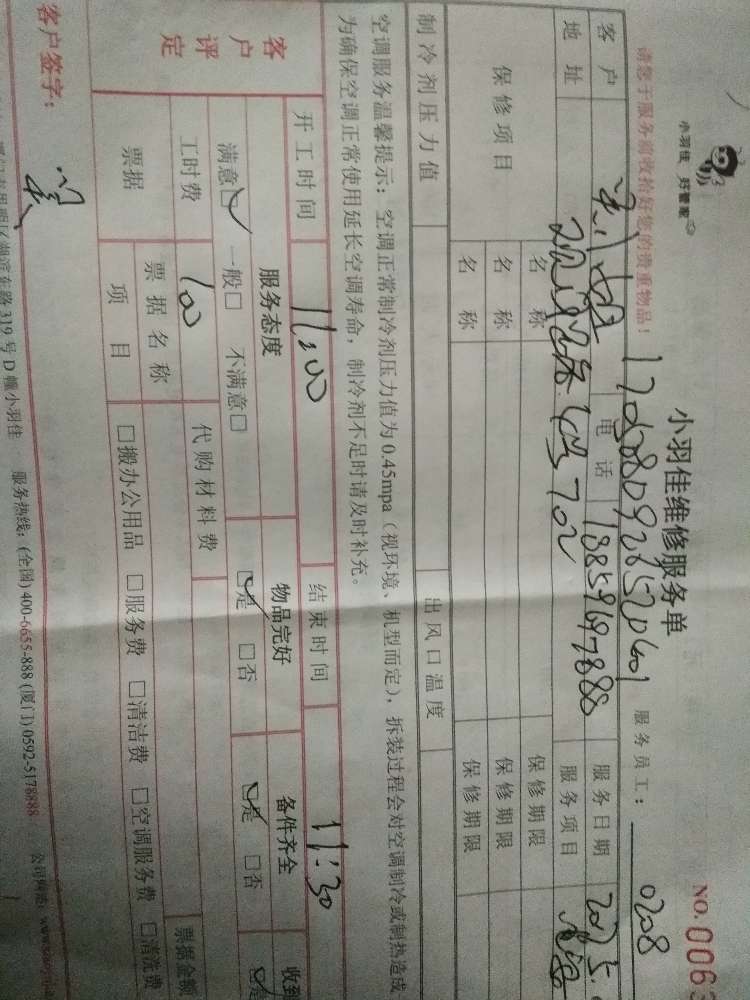 小羽佳 好管家
小羽佳维修服务单
NO. 006
请您于服务前收拾好您的贵重物品!
服务员工: 0208
客户
电话 18859697888
服务日期
地址
702
服务项目
保修项目
名称
保修期限
名称
保修期限
名称
保修期限
制冷剂压力值
出风口温度
空调服务温馨提示: 空调正常制冷剂压力值为0.45mpa(视环境、机型而定), 拆装过程会对空调制冷或制热造成
为确保空调正常使用延长空调寿命, 制冷剂不足时请及时补充。
开工时间 11:00
结束时间 11:30
客户评定
服务态度
物品完好
备件齐全
收到
满意☑ 一般□ 不满意□
☑是 □否
☑是 □否
☑是
工时费 100
代购材料费
票据
票据名称
票据金额
项目
□搬办公用品 □服务费 □清洁费 □空调服务费 □清洗费
客户签字:
湖滨东路319号D幢小羽佳 服务热线: (全国) 400-6655-888 (厦门) 0592-5178888 公司网址: